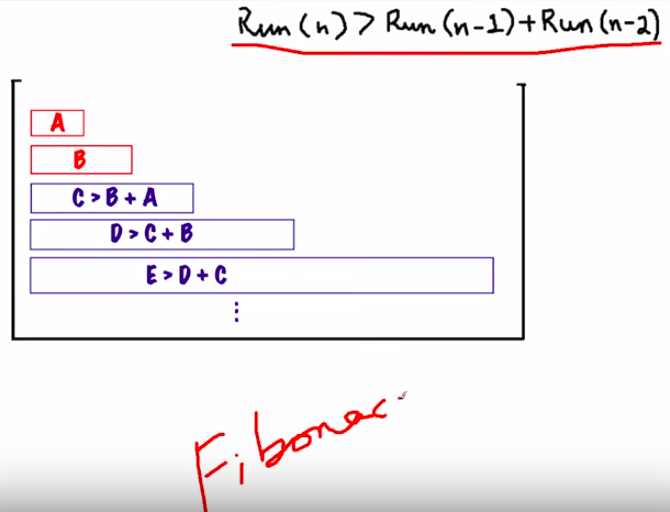 Run(n) > Run(n-1)+Run(n-2)
A
B
C > B + A
D > C + B
E > D + C
⋮
Fibonac